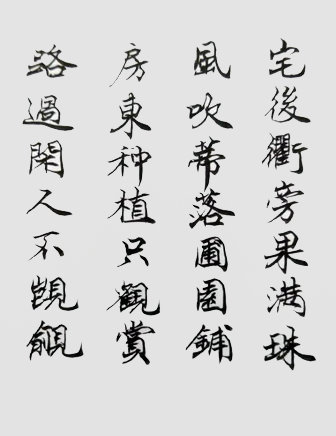 宅後衢旁果满珠
風吹蒂落圃園鋪
房東种植只觀賞
路過閑人不覬覦